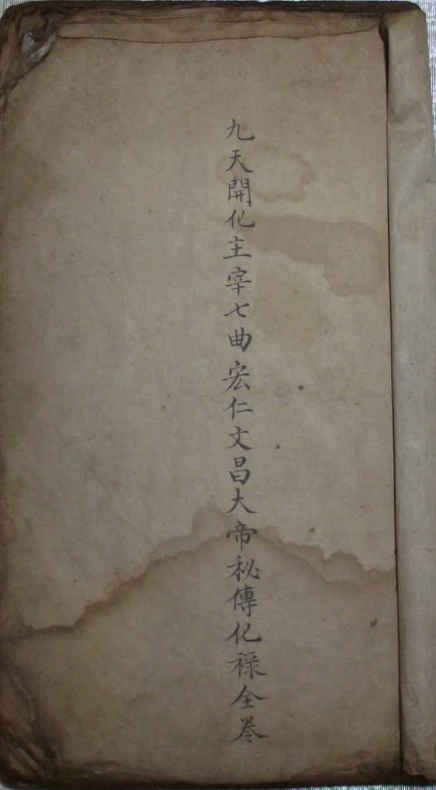 九天開化主宰七曲宏仁文昌大帝秘傳化祿全卷